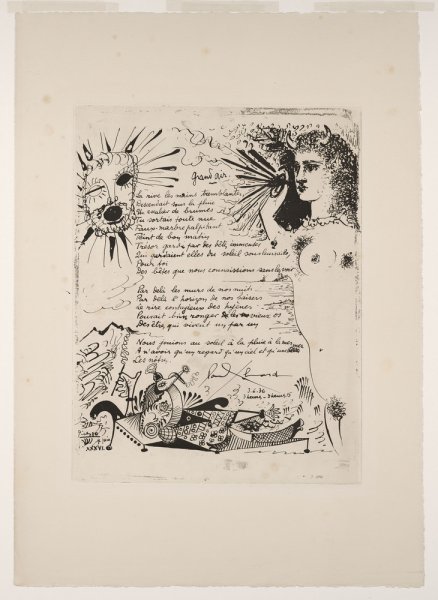 Grand air
La rive les mains tremblantes
Descendait sous la pluie
Un escalier de brumes
Tu sortais toute nue
Faux marbre palpitant
Teint de bon matin
Trésor gardé par des bêtes immenses
Qui gardaient elles du soleil sous leurs ailes
Pour toi
Des bêtes que nous connaissions sans les voir
Par delà les murs de nos nuits
Par delà l'horizon de nos baisers
Le rire contagieux des hyènes
Pouvait bien ronger les vieux os
Des êtres qui vivent un par un
Nous jouions au soleil à la pluie à la mer
A n'avoir qu'un regard qu'un ciel et qu'une mer
Les nôtres
Paul Eluard
3.6.36
3 heures
XXXVI